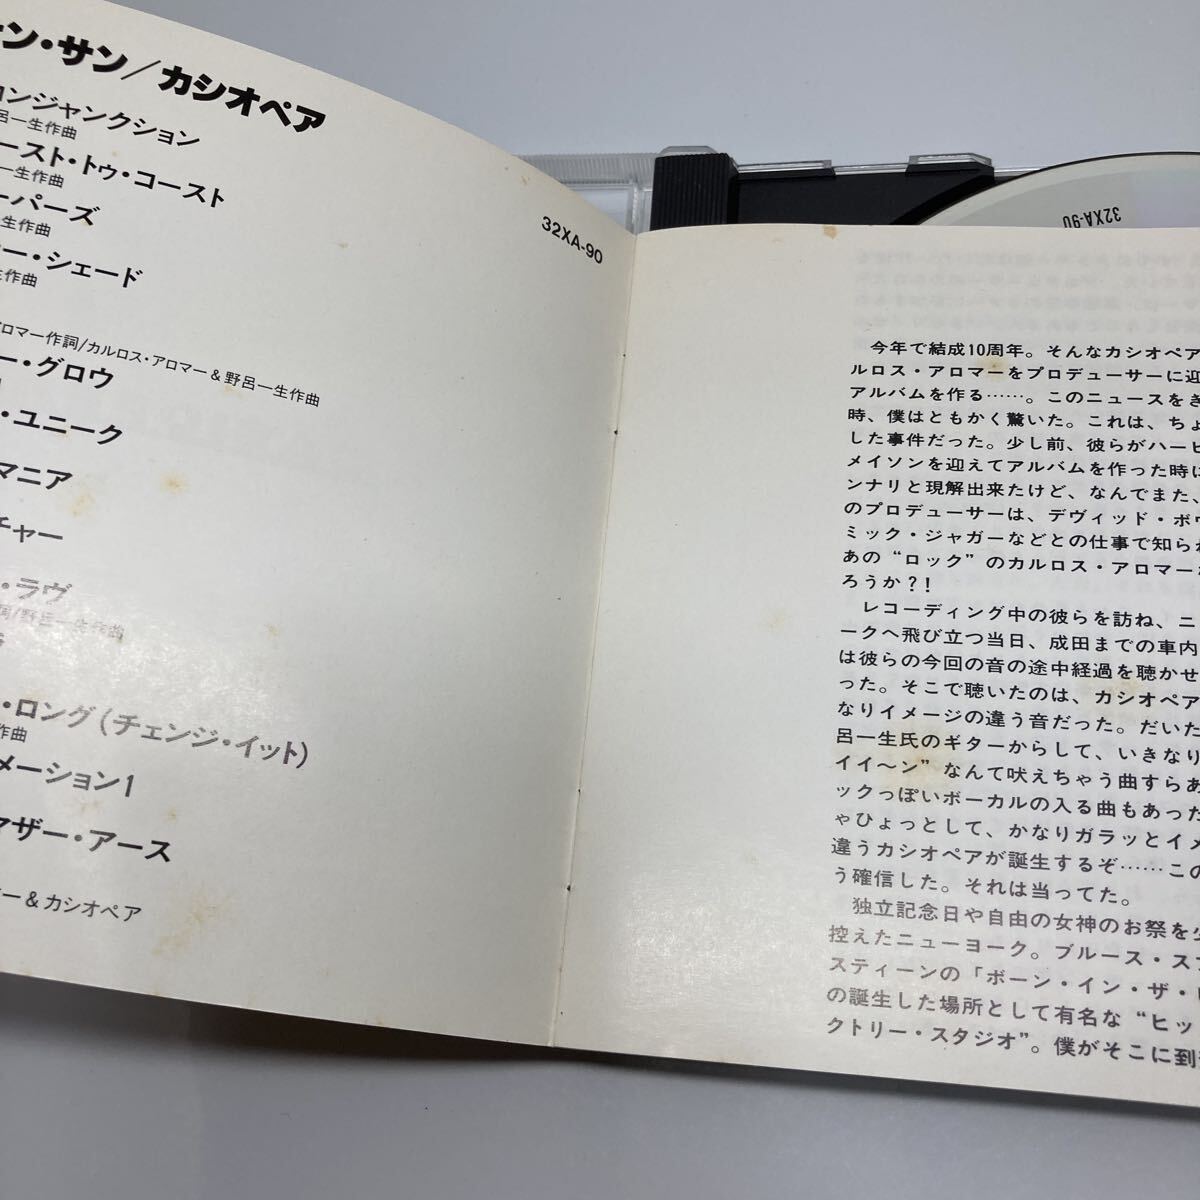 ン・サン/カシオペア
コンジャンクション
呂一生作曲
ースト・トゥ・コースト
一生作曲
ーパーズ
生作曲
ー・シェード
生作曲
アロマー作詞/カルロス・アロマー&野呂一生作曲
ー・グロウ
・ユニーク
マニア
チャー
・ラヴ
詞/野呂一生作曲
・ロング(チェンジ・イット)
作曲
メーション1
マザー・アース
ー&カシオペア
32XA-90
32XA-90
今年で結成10周年。そんなカシオペア
ルロス・アロマーをプロデューサーに迎
アルバムを作る……。このニュースをき
時、僕はともかく驚いた。これは、ちょ
した事件だった。少し前、彼らがハービ
メイソンを迎えてアルバムを作った時に
ンナリと現解出来たけど、なんでまた、
のプロデューサーは、デヴィッド・ボウ
ミック・ジャガーなどとの仕事で知られ
あの“ロック”のカルロス・アロマー
ろうか?!
レコーディング中の彼らを訪ね、ニ
ークへ飛び立つ当日、成田までの車内
は彼らの今回の音の途中経過を聴かせ
った。そこで聴いたのは、カシオペア
なりイメージの違う音だった。だいた
呂一生氏のギターからして、いきなり
イイ〜ン”なんて吠えちゃう曲すらあ
ックっぽいボーカルの入る曲もあった
ゃひょっとして、かなりガラッとイメ
違うカシオペアが誕生するぞ……この
う確信した。それは当ってた。
独立記念日や自由の女神のお祭を少
控えたニューヨーク。ブルース・スプ
スティーンの「ボーン・イン・ザ・
の誕生した場所として有名な“ヒッ
クトリー・スタジオ”。僕がそこに到